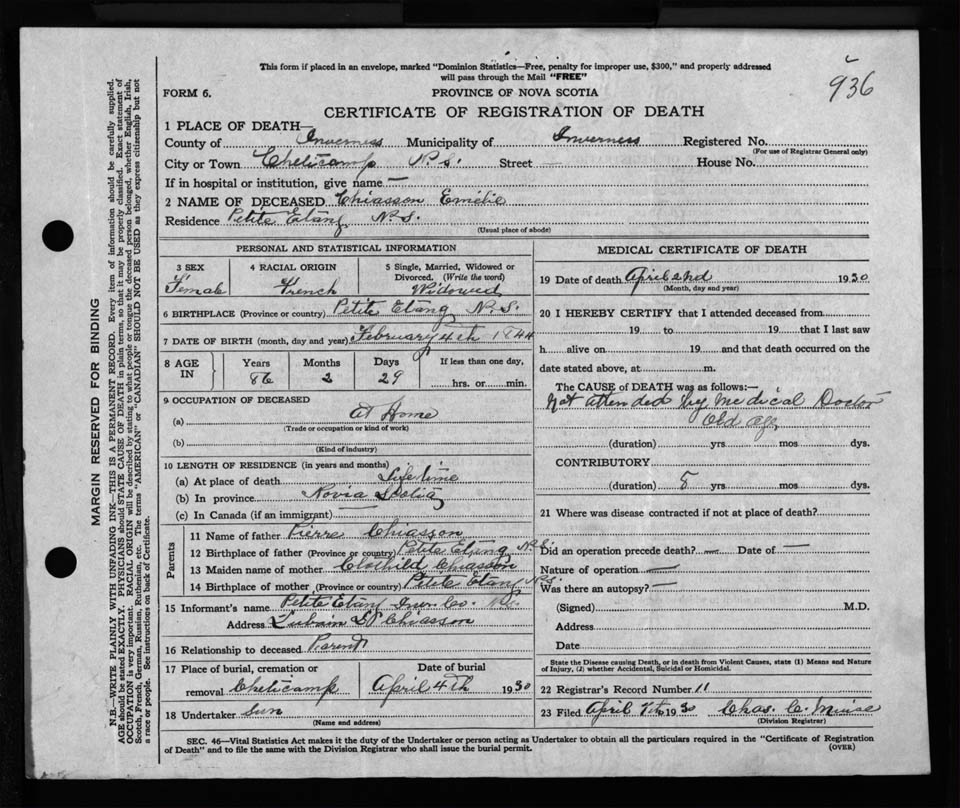 936
This form if placed in an envelope, marked "Dominion Statistics—Free, penalty for improper use, $300," and properly addressed
will pass through the Mail "FREE"
FORM 6.
PROVINCE OF NOVA SCOTIA
CERTIFICATE OF REGISTRATION OF DEATH
1 PLACE OF DEATH—
County of Inverness Municipality of Inverness Registered No.
(For use of Registrar General only)
City or Town Cheticamp N.S. Street House No.
If in hospital or institution, give name —
2 NAME OF DECEASED Chiasson Emélie
Residence Petite Etang N.S.
(Usual place of abode)
PERSONAL AND STATISTICAL INFORMATION
3 SEX
Female
4 RACIAL ORIGIN
French
5 Single, Married, Widowed or
Divorced. (Write the word)
Widowed
6 BIRTHPLACE (Province or country) Petite Etang N.S.
7 DATE OF BIRTH (month, day and year) February 4th 1844
8 AGE
IN
Years
86
Months
2
Days
29
If less than one day,
hrs. or min.
9 OCCUPATION OF DECEASED
(a) At Home
(Trade or occupation or kind of work)
(b)
(Kind of industry)
10 LENGTH OF RESIDENCE (in years and months)
(a) At place of death Lifetime
(b) In province Novia Scotia
(c) In Canada (if an immigrant) —
Parents
11 Name of father Pierre Chiasson
12 Birthplace of father (Province or country) Petite Etang N.S.
13 Maiden name of mother Clothild Chiasson
14 Birthplace of mother (Province or country) Petite Etang N.S.
15 Informant's name Petite Etang Inv. Co. N.S.
Address Lubain S P Chiasson
16 Relationship to deceased Parent
17 Place of burial, cremation or
removal Cheticamp
Date of burial
April 4th 1930
18 Undertaker Son
(Name and address)
MEDICAL CERTIFICATE OF DEATH
19 Date of death April 2nd 1930
(Month, day and year)
20 I HEREBY CERTIFY that I attended deceased from
19 to 19 that I last saw
h alive on 19 and that death occurred on the
date stated above, at m.
The CAUSE of DEATH was as follows:—
Not attended by Medical Doctor
Old Age
(duration) yrs mos dys.
CONTRIBUTORY
(duration) 5 yrs mos dys.
21 Where was disease contracted if not at place of death?
Did an operation precede death? — Date of —
Nature of operation —
Was there an autopsy? —
(Signed) M.D.
Address
Date
State the Disease causing Death, or in death from Violent Causes, state (1) Means and Nature
of Injury, (2) whether Accidental, Suicidal or Homicidal.
22 Registrar's Record Number 11
23 Filed April 1930 Chas. C.
(Division Registrar)
SEC. 46—Vital Statistics Act makes it the duty of the Undertaker or person acting as Undertaker to obtain all the particulars required in the "Certificate of Registration
of Death" and to file the same with the Division Registrar who shall issue the burial permit.
(OVER)
MARGIN RESERVED FOR BINDING
N.B.—WRITE PLAINLY WITH UNFADING INK—THIS IS A PERMANENT RECORD. Every item of information should be carefully supplied.
AGE should be stated EXACTLY. PHYSICIANS should STATE CAUSE OF DEATH in plain terms, so that it may be properly classified. Exact statement of
OCCUPATION is very important. RACIAL ORIGIN will be described by stating to what people or tongue the deceased person belonged, whether English, Irish,
Scotch, French, German, Russian, Ruthenian, etc. The terms "AMERICAN" or "CANADIAN" SHOULD NOT BE USED as they express citizenship but not
a race or people. See instructions on back of Certificate.